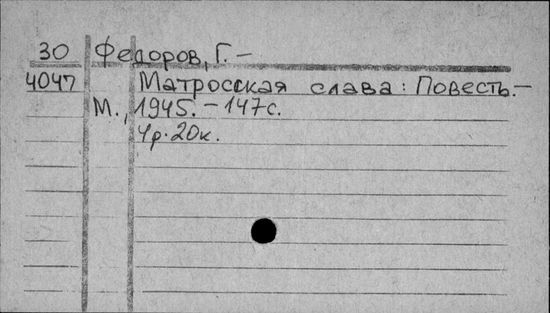 30 Федоров, Г. –
4047 Матросская слава: Повесть. –
М., 1945. – 147с.
4р. 20к.